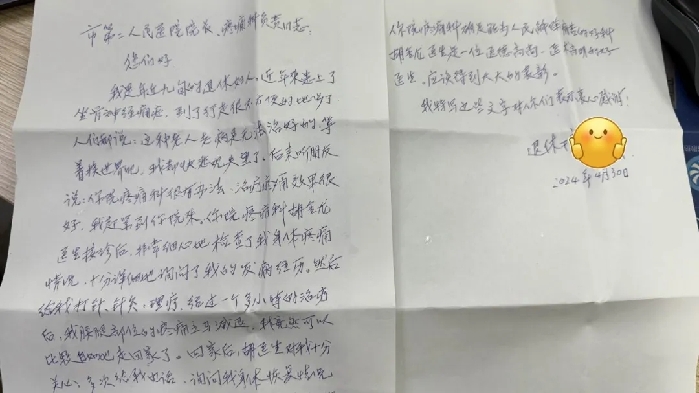 市第二人民医院院长、疼痛科负责同志:
您们好
我是年近九旬的退休妇人,近年来患上了
坐骨神经痛症,到了行走很不方便的地步了
人们都说:这种老人老病是无法治好的,等
着接世界吧,我却快悲观失望了。后来听朋友
说:你院疼痛科很有办法,治疗疼痛效果很
好,我赶紧到你院来,你院疼痛科胡金龙
医生接诊后,非常细心地检查了我身体疼痛
情况,十分详细地询问了我的发病经历,然后
给我打针、针灸、理疗,经过一个多小时的治疗
后,我腰腿部位的疼痛立马减退,我就可以
比较自如地走回家了。回家后,胡医生对我十分
关心,多次给我电话,询问我身体恢复情况
你院疼痛科
胡金龙医生是一位医德高尚、医术高明的好
医生,应该得到大大的表彰。
我特写这些文字对你们表示衷心感谢!
退休
2024年4月30日